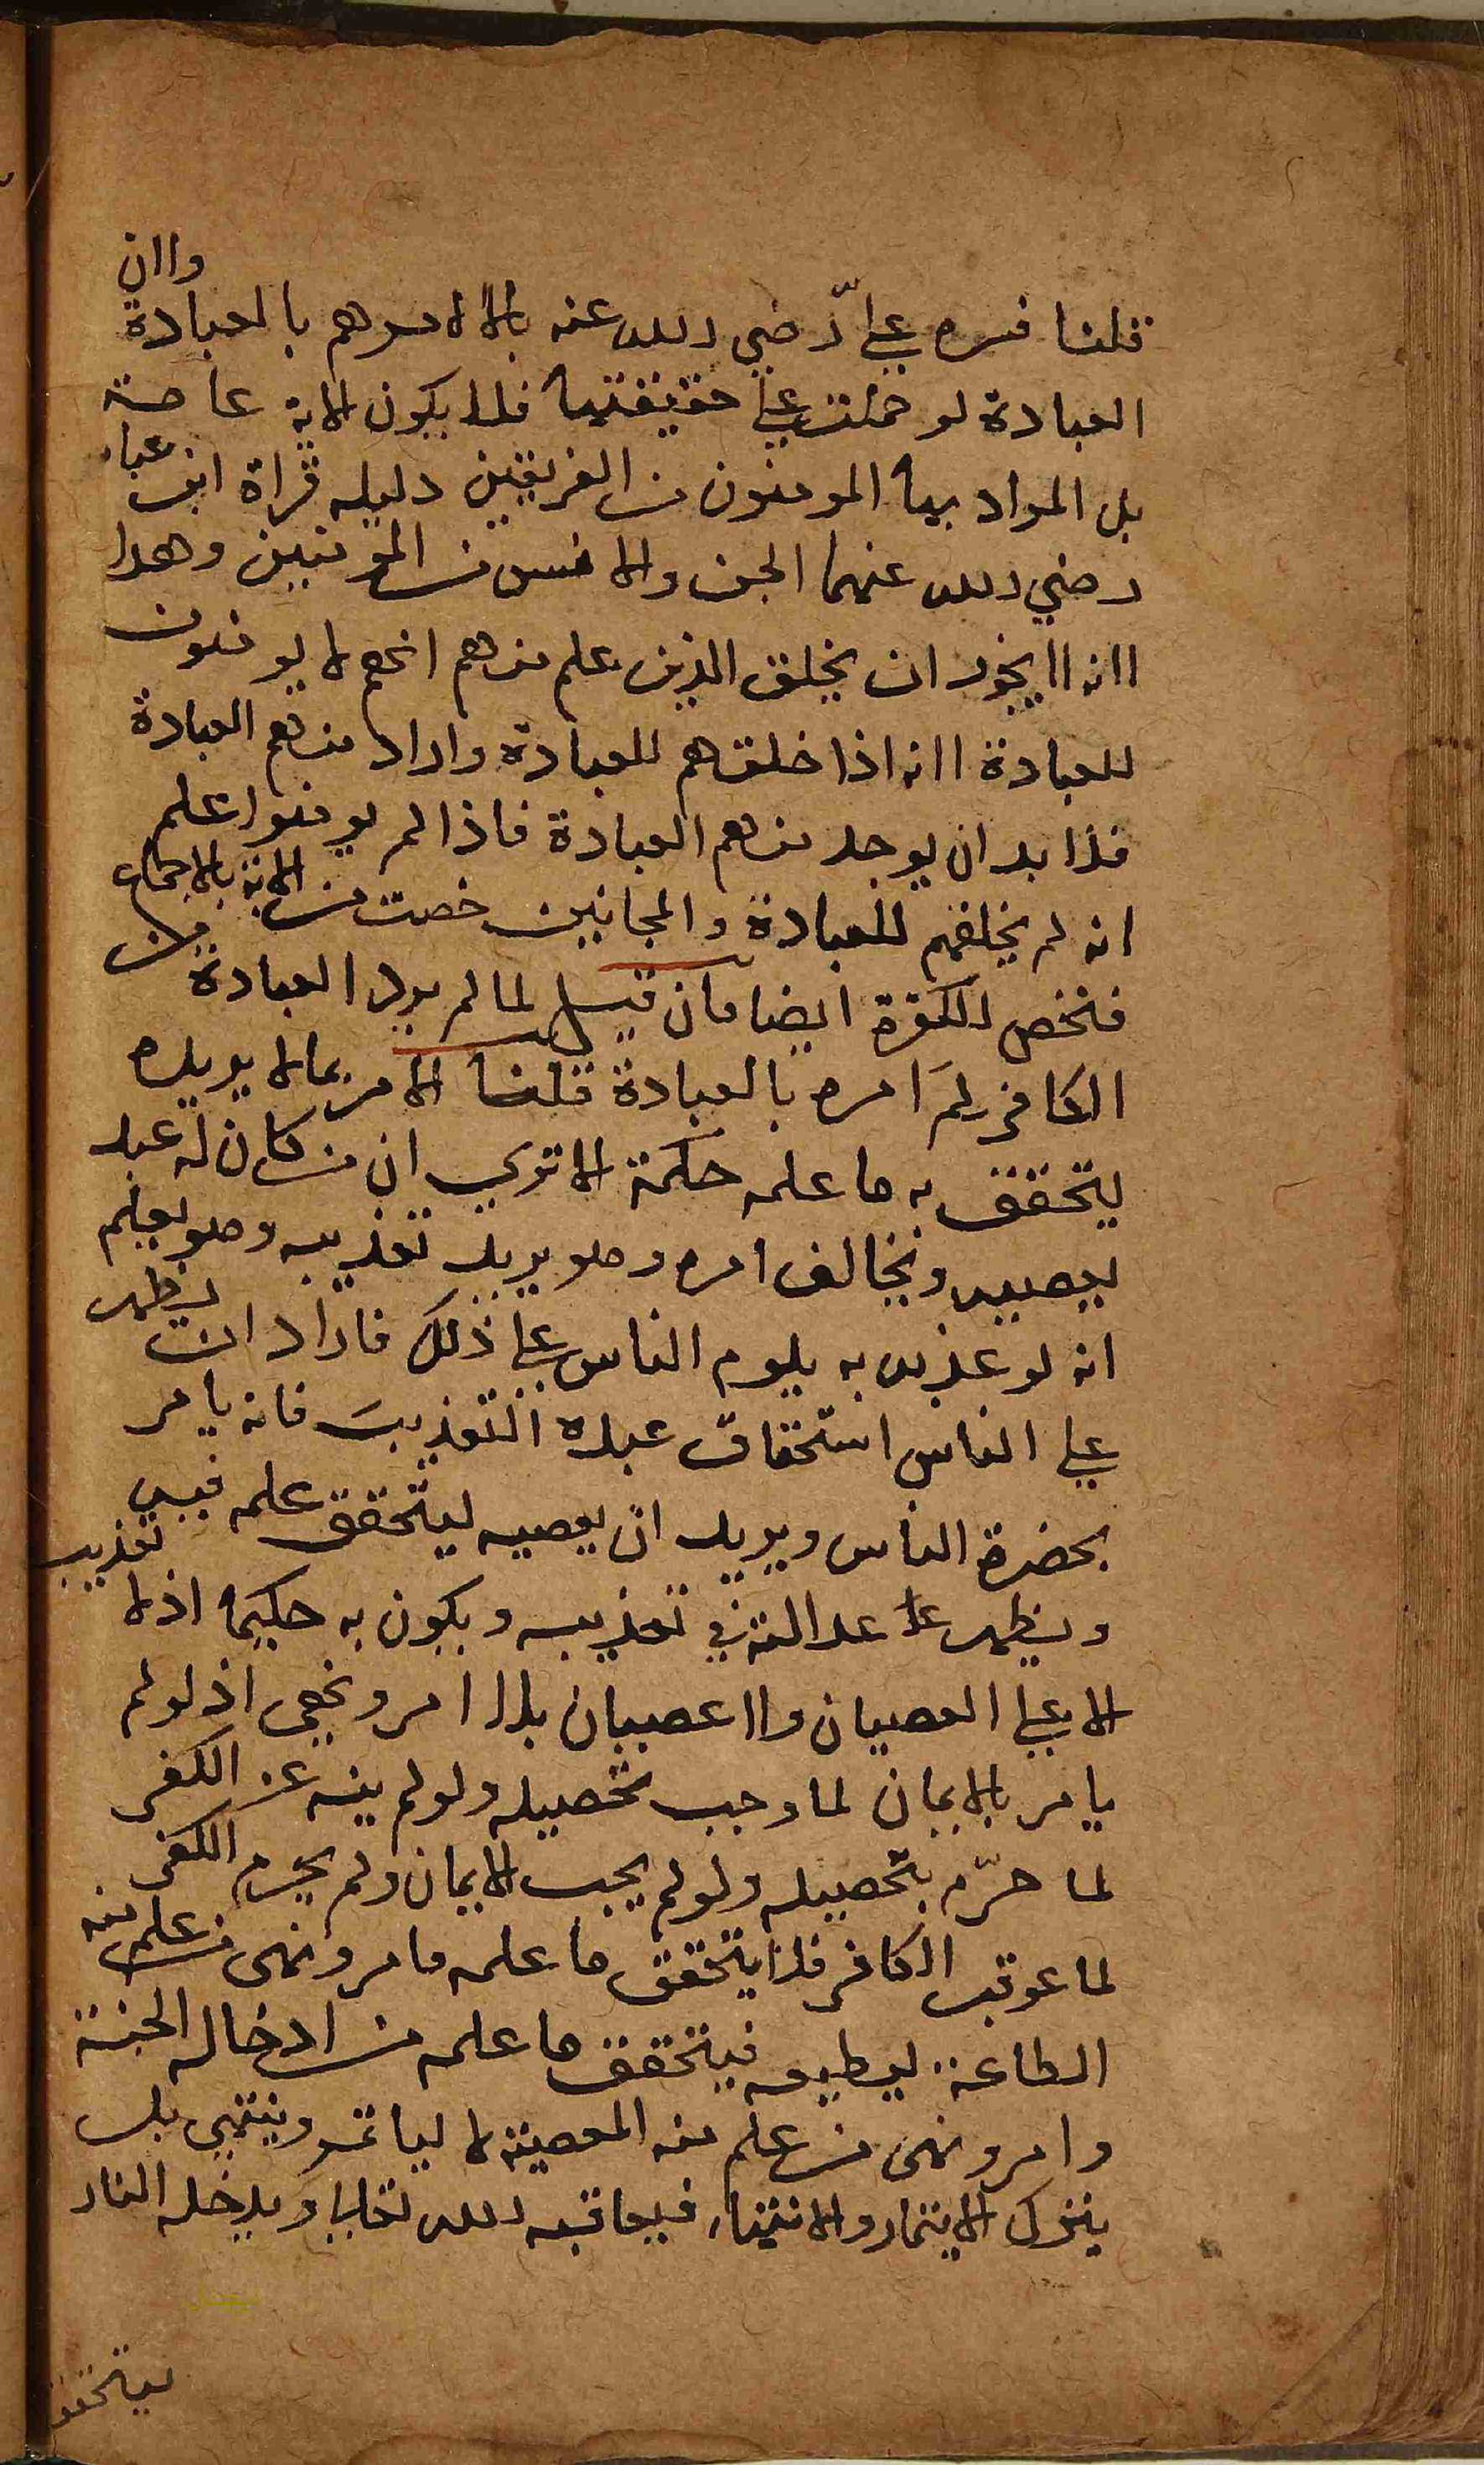 قلنا فسره علي رضي الله عنه بالا لامرهم بالعبادة وان
العبادة لو حملت علي حقيقتها فلا يكون الاية عامة
بل المراد بها المومنون من الفريقين دليله قراة ابن عباس
رضي الله عنهما الجن والانس من المومنين وهذا
لانه لا يجوز ان يخلق الذين علم منهم انهم لا يومنون
للعبادة لانه اذا خلقهم للعبادة واراد منهم العبادة
فلا بد ان يوجد منهم العبادة فاذا لم يومنوا علم
انه لم يخلقهم للعبادة والمجانين خصت من الاية بالاجماع
فتخص الكفرة ايضا فان قيل لما لم يرد العبادة من
الكافر لم امره بالعبادة قلنا الامر بما لا يريده
يتحقق به ما علمه حكمة الا تري ان من كان له عبد
يعصيه ويخالف امره وهو يريد تعذيبه وهو يعلم
انه لو عذبه به يلوم الناس علي ذلك فاراد ان يظهر
علي الناس استحقاق عبده التعذيب فانه يامر
بحضرة الناس ويريد ان يعصيه ليتحقق علمه فيه
ويظهر عدالته في تعذيبه ويكون به حكيما اذ لا تعذيب
الا علي العصيان ولا عصيان بلا امر ونهي اذ لو لم
يامر بالايمان لما وجب تحصيله ولو لم ينه عن الكفر
لما حرّم بتحصيله ولو لم يجب الايمان ولم يحرم الكفر
لما عوقب الكافر فلا يتحقق ما علمه فامر ونهى من علم منه
الطاعة ليطيعه فيتحقق ما علمه من ادخاله الجنة
وامر ونهى من علم منه المعصية لا لياتمر وينتهي بل
يترك الايتمار والانتهاء فيعاقبه الله تعالى ويدخله النار
ليتحقق